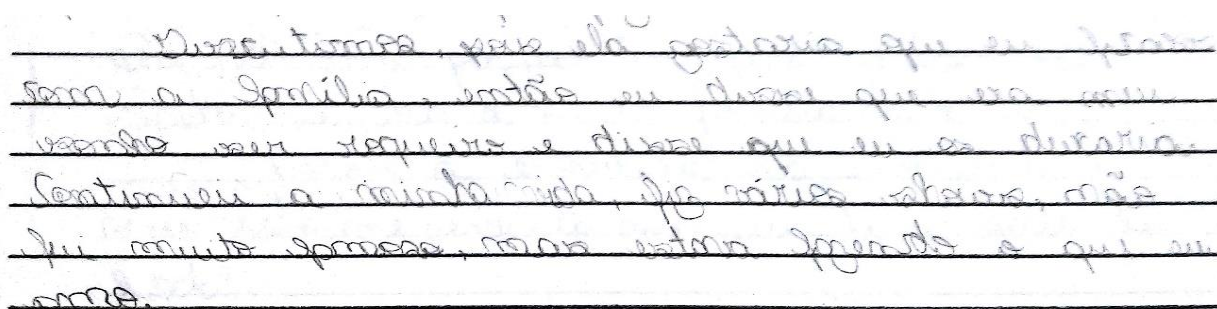 Discutimos, pois ela gostaria que eu ficasse
com a família, então eu disse que era meu
sonho ser roqueiro e disse que eu os deixaria.
Continuei a minha vida, fiz vários shows, não
fui muito famoso, mas estava fazendo o que eu
amo.